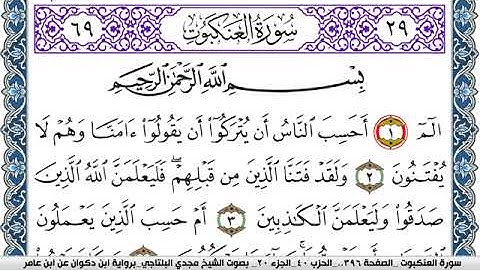 ٢٩ سُورَةُ العَنكَبُوت ٦٩
بِسْمِ اللَّهِ الرَّحْمَٰنِ الرَّحِيمِ
الٓمٓ ١ أَحَسِبَ النَّاسُ أَن يُتْرَكُوٓا۟ أَن يَقُولُوٓا۟ ءَامَنَّا وَهُمْ لَا
يُفْتَنُونَ ٢ وَلَقَدْ فَتَنَّا الَّذِينَ مِن قَبْلِهِمْ ۖ فَلَيَعْلَمَنَّ اللَّهُ الَّذِينَ
صَدَقُوا۟ وَلَيَعْلَمَنَّ الْكَٰذِبِينَ ٣ أَمْ حَسِبَ الَّذِينَ يَعْمَلُونَ
سورة العنكبوت _الصفحة ٣٩٦_ الحزب ٤٠_الجزء ٢٠_ بصوت الشيخ مجدي البلتاجي_برواية ابن ذكوان عن ابن عامر